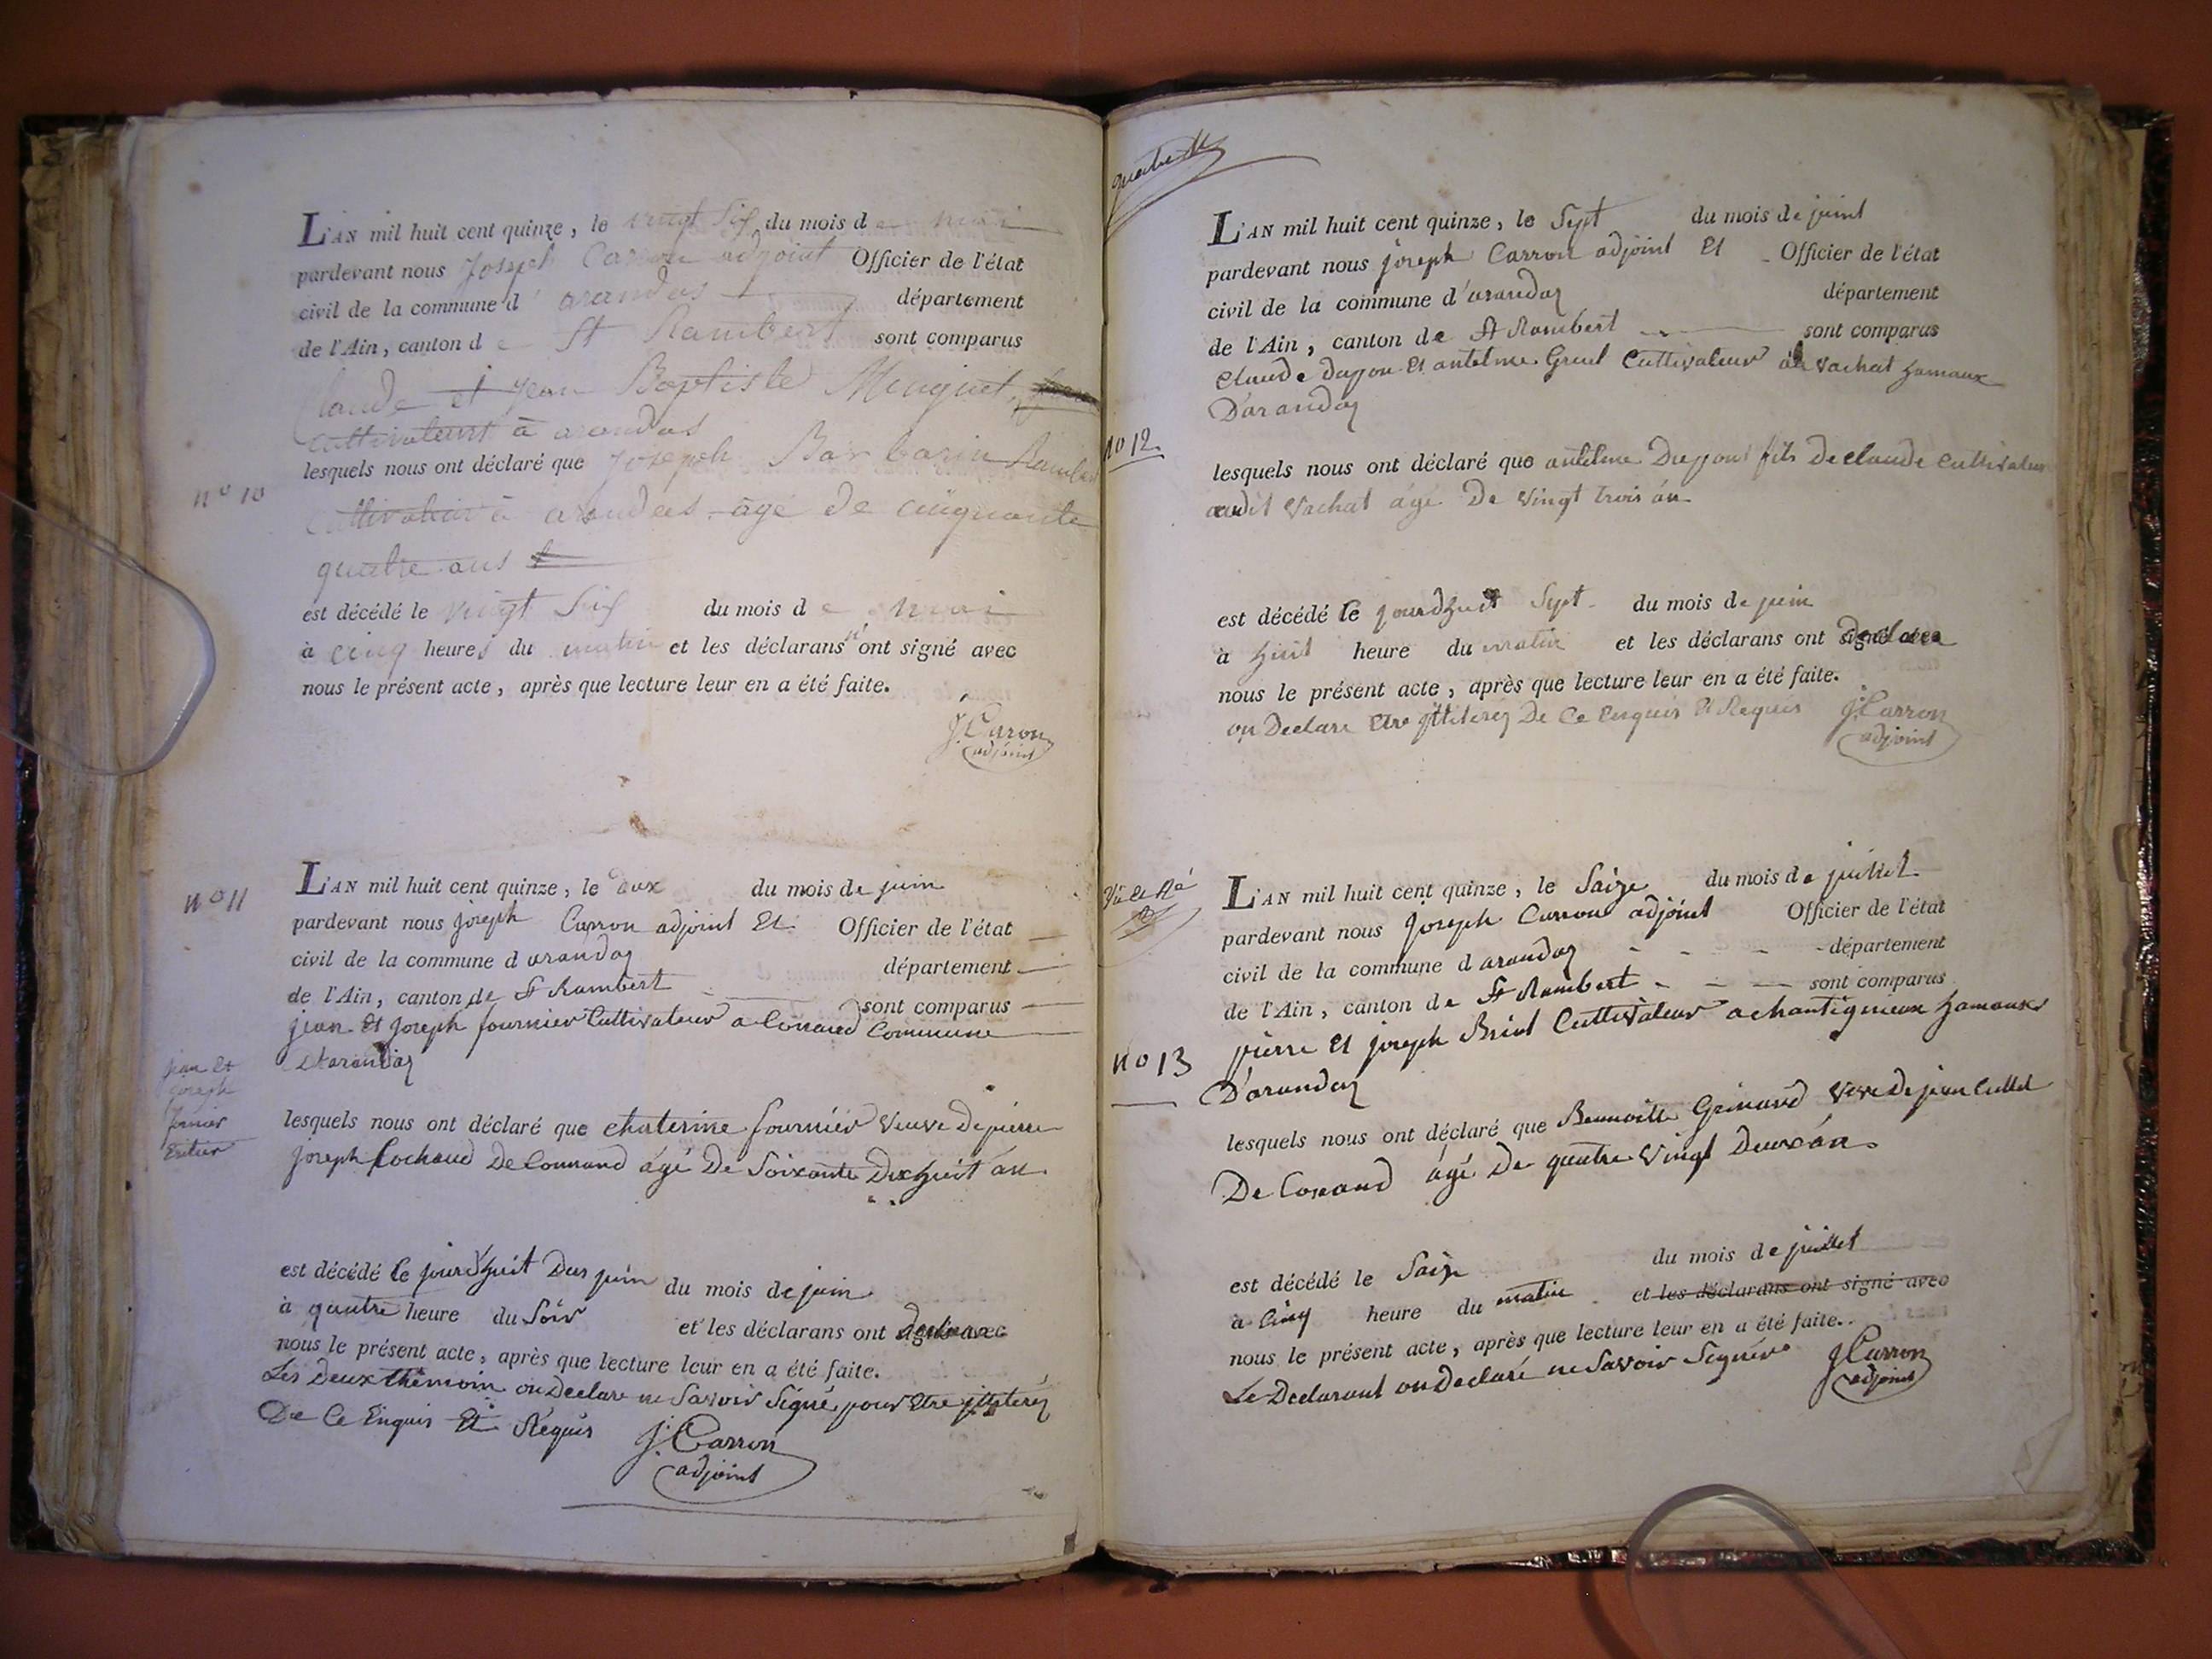 L'AN mil huit cent quinze, le vingt Six du mois de mai
pardevant nous Joseph Carron adjoint Officier de l'état
civil de la commune d'arandas département
de l'Ain, canton de St Rambert sont comparus
Claude et Jean Baptiste Muguet,
Cultivateurs à arandas
lesquels nous ont déclaré que Joseph Barbarin
n° 10
Cultivateur à arandas âgé de cinquante
quatre ans
est décédé le vingt Six du mois de mai
à cinq heures du matin et les déclarans n'ont signé avec
nous le présent acte, après que lecture leur en a été faite.
J. Caron
adjoint
n° 11
L'AN mil huit cent quinze, le dux du mois de juin
pardevant nous joseph Carron adjoint Et Officier de l'état
civil de la commune d arandas département
de l'Ain, canton de St Rambert sont comparus
jean Et joseph fournier Cultivateur a Conand Commune
Darandas
jean Et
joseph
lesquels nous ont déclaré que chaterine fournier veuve De pierre
joseph Cochaud De Connand âgé De Soixante Dix huit an
est décédé le jourdhuit Dux juin du mois de juin
à quatre heure du Soir et les déclarans ont
nous le présent acte, après que lecture leur en a été faite.
Les Deux themoin on Declare ne Savoir Signé pour Etre
De Ce Enquis Et Requis J. Carron
adjoint
quatre
L'AN mil huit cent quinze, le Sept du mois de juint
pardevant nous joseph Carron adjoint Et Officier de l'état
civil de la commune d'arandas département
de l'Ain, canton de St Rambert sont comparus
Claude Dupon Et antelme Cultivateur vachat hamaux
D'arandas
no 12
lesquels nous ont déclaré que antelme Duppont fils De claude Cultivateur
audit vachat âgé De vingt trois an
est décédé le jourdhuit Sept du mois de juin
à huit heure du matin et les déclarans ont
nous le présent acte, après que lecture leur en a été faite.
on Declare Etre De Ce Enquis Et Requis J. Carron
adjoint
L'AN mil huit cent quinze, le Saize du mois de juillet
pardevant nous joseph Carron adjoint Officier de l'état
civil de la commune d arandas département
de l'Ain, canton de St Rambert sont comparus
pierre Et joseph Cultivateur a chantignieux hamaux
no 13
D'arandas
lesquels nous ont déclaré que Bennoitte veve De jean
De Conand âgé De quatre vingt Deux an
est décédé le Saize du mois de juillet
à Cinq heure du matin et les déclarans ont signé avec
nous le présent acte, après que lecture leur en a été faite.
Le Declarant on Declaré ne Savoir Signér J Carron
adjoint